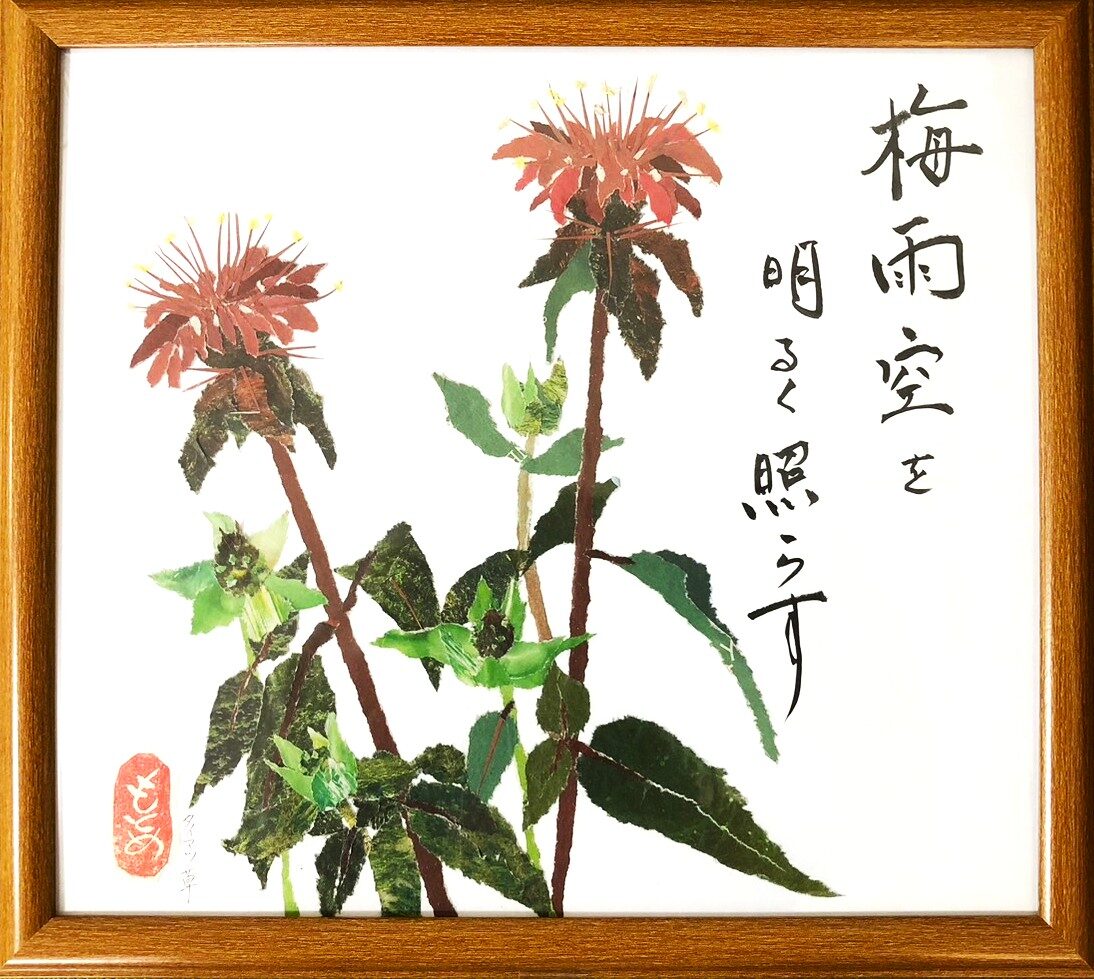 梅雨空を
明るく照らす
タイマツ草
をとめ